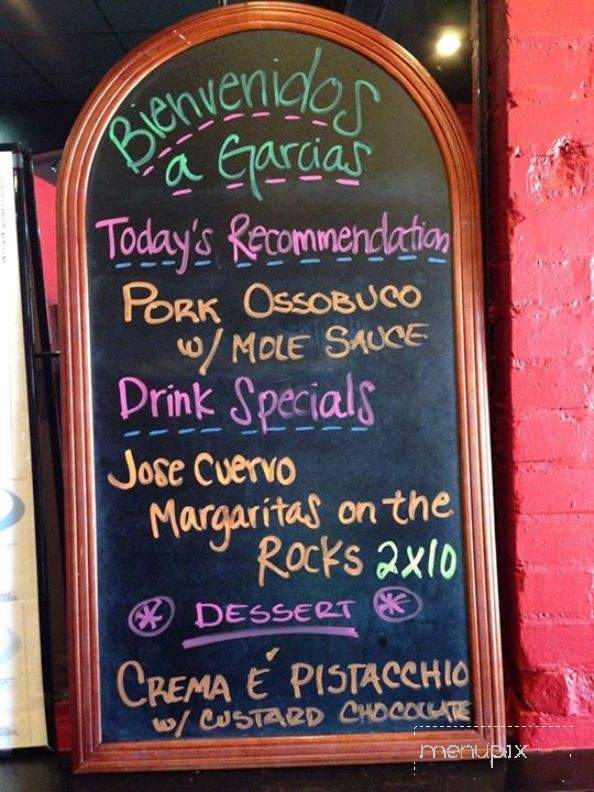 Bienvenidos
a Garcias
Today's Recommendation
PORK OSSOBUCO
w/ MOLE SAUCE
Drink Specials
Jose Cuervo
Margaritas on the
Rocks 2x10
DESSERT
CREMA É PISTACCHIO
w/ CUSTARD CHOCOLATE
menupix